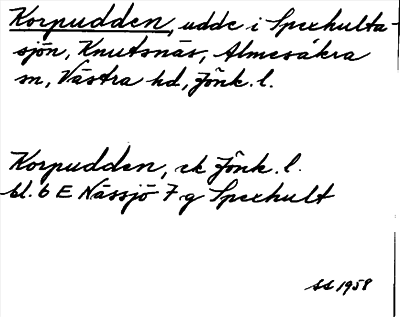 Korpudden, udde i Spexhulta-
sjön, Knutsnäs, Almesåkra
sn, Västra hd, Jönk. l.
Korpudden, ek Jönk. l.
bl. 6 E Nässjö 7 g Spexhult
SS 1958